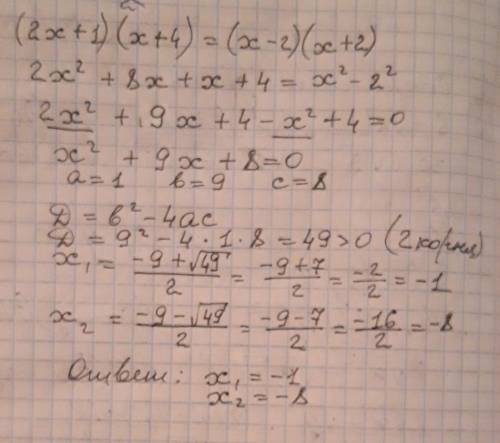 (2x+1)(x+4) = (x-2)(x+2)
2x² + 8x + x + 4 = x² - 2²
2x² + 9x + 4 - x² + 4 = 0
x² + 9x + 8 = 0
a = 1 в = 9 c = 8
D = в² - 4ac
D = 9² - 4 · 1 · 8 = 49 > 0 (2 корня)
x₁ = (-9 + √49)/2 = (-9+7)/2 = -2/2 = -1
x₂ = (-9 - √49)/2 = (-9-7)/2 = -16/2 = -8
Ответ: x₁ = -1
x₂ = -8